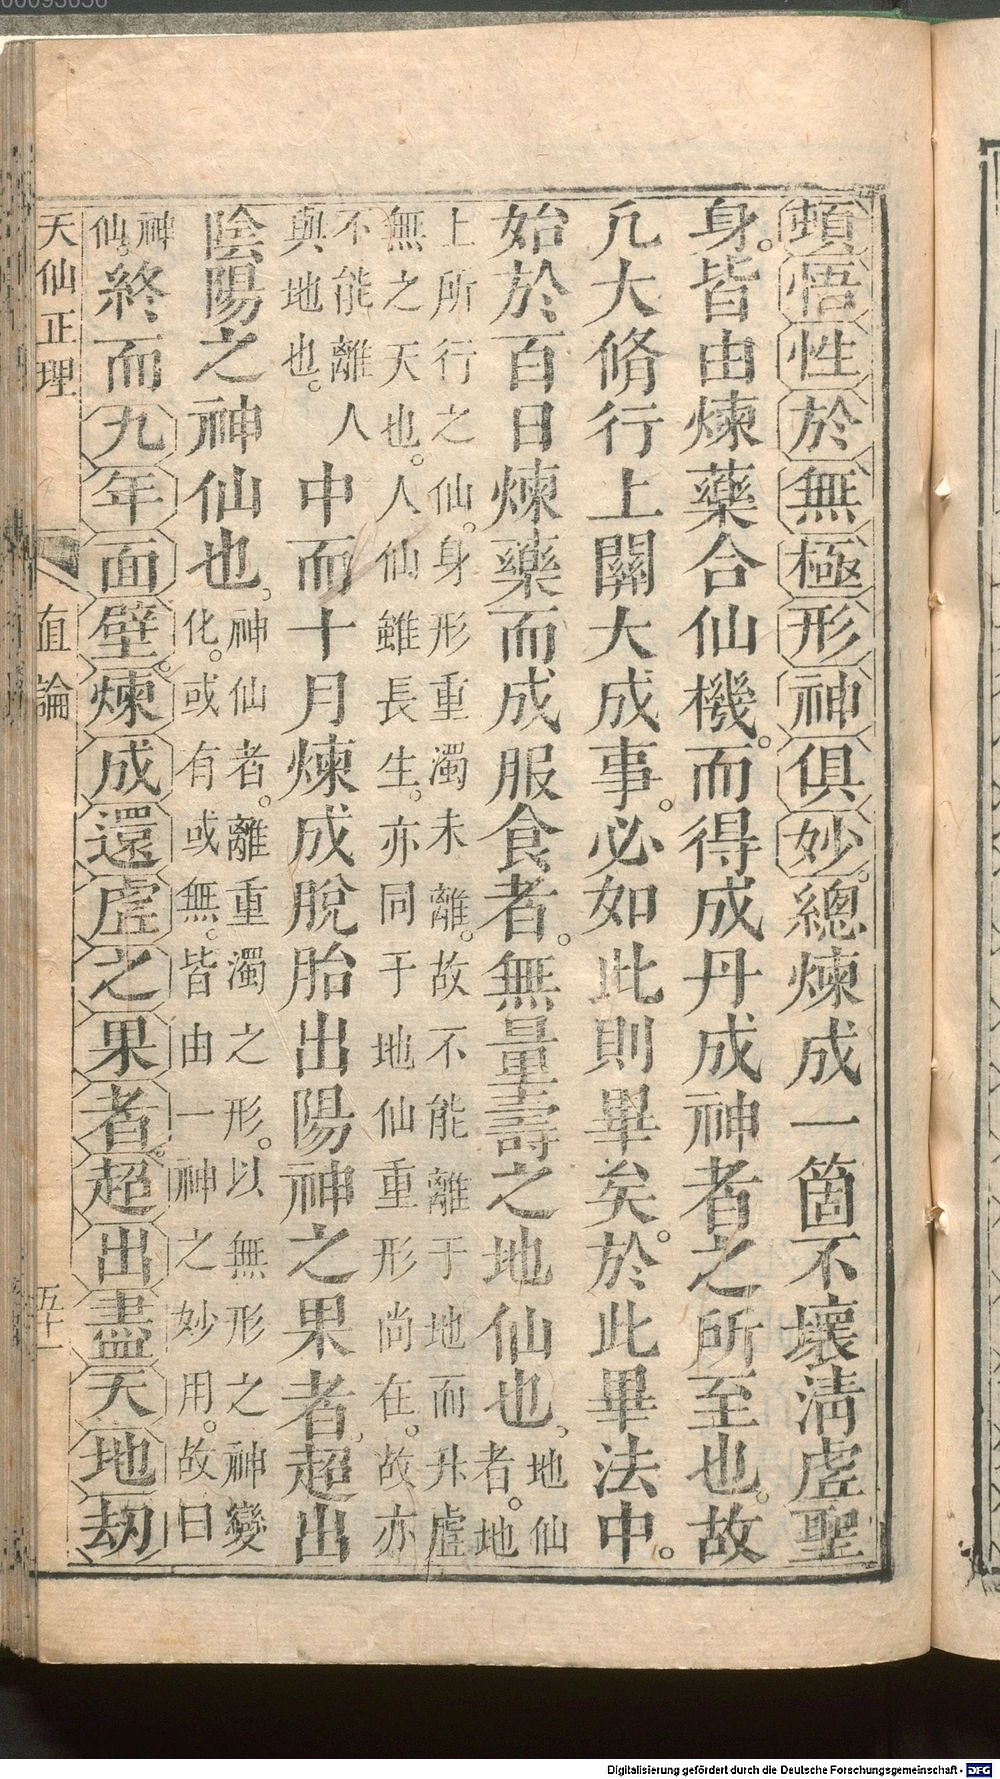 頓悟性於無極形神俱妙。總煉成一箇不壞淸虛聖
身。皆由煉藥合仙機。而得成丹成神者之所至也。故
凡大脩行上關大成事。必如此則畢矣。於此畢法中。
始於百日煉藥而成服食者。無量壽之地仙也、地仙
者。地
上所行之仙。身形重濁未離。故不能離于地而升虛
無之天也。人仙雖長生。亦同于地仙重形尚在。故亦
不能離人
與地也。
中而十月煉成脫胎出陽神之果者、超出
陰陽之神仙也、神仙者。離重濁之形。以無形之神變
化。或有或無。皆由一神之妙用。故曰
神
仙。終而九年面壁。煉成還虛之果者。超出盡天地劫
天仙正理 直論 五十一
00093056
Digitalisierung gefördert durch die Deutsche Forschungsgemeinschaft - DFG